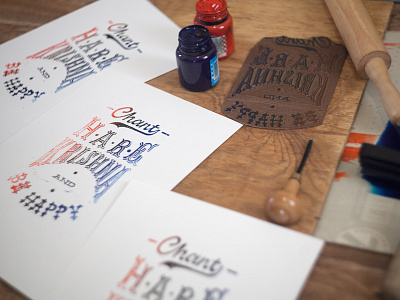 HARE
KRISHNA
AND
BE HAPPY
-Chant-
H·A·R·E
KRISHNA
·AND·
BE HAPPY
-Chant-
H·A·R·E
Chant
H·A·R·E
KRISHNA
AND
BE HAPPY